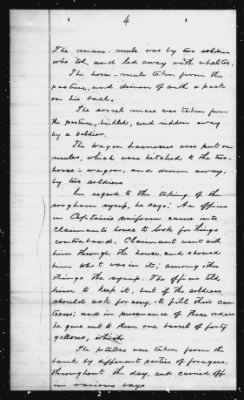 4
The mare mule was by two soldiers
who took and led away with halter.
The horse mule taken from the
pasture, and driven off with a pack
on his back.
The sorrel mare was taken from
the pasture, bridled, and ridden away
by a soldier.
The wagon harnesses were put on
mules, which were hitched to the two-
horse wagon, and driven away,
by two soldiers
In regard to the taking of the
sorghum syrup, he says: An officer
in Captain's uniform came into
Claimants house to look for things
contraband, Claimant went with
him through the house, and showed
him what was in it; among other
things the syrup. The officer told
him to keep it, but if the soldiers
should ask for any, to fill their can-
teens; and in pursuance of these orders
he gave out to them one barrel of forty
gallons, which
The potatoes was taken from the
bank by different parties of foragers,
throughout the day, and carried off
in various ways